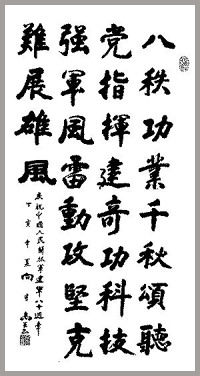 八秩功業千秋頌聽
党指揮建奇功科技
强軍風雷動攻堅克
難展雄風
庆祝中國人民解放軍建軍八十週年
丁亥年夏